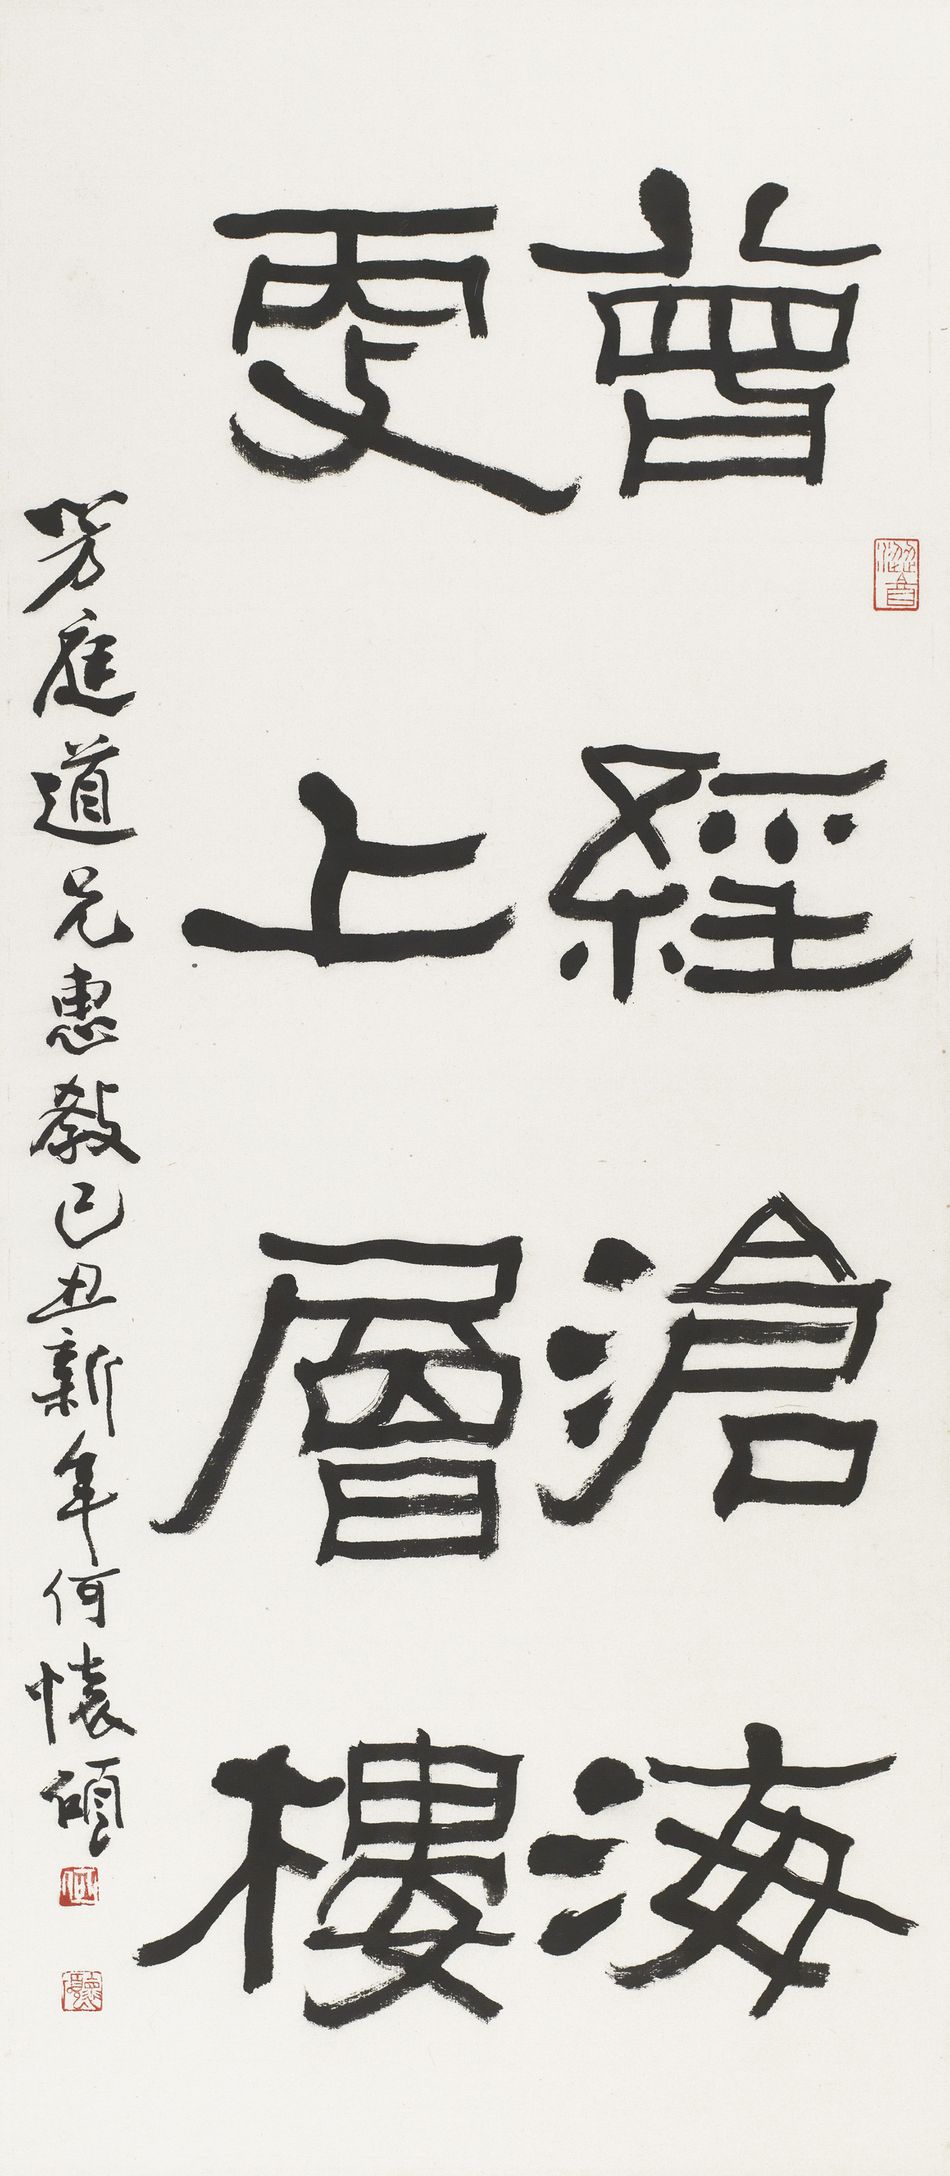 曾經滄海
更上層樓
芳庭道兄惠教己丑新年何懷碩
澀音
何
懷碩